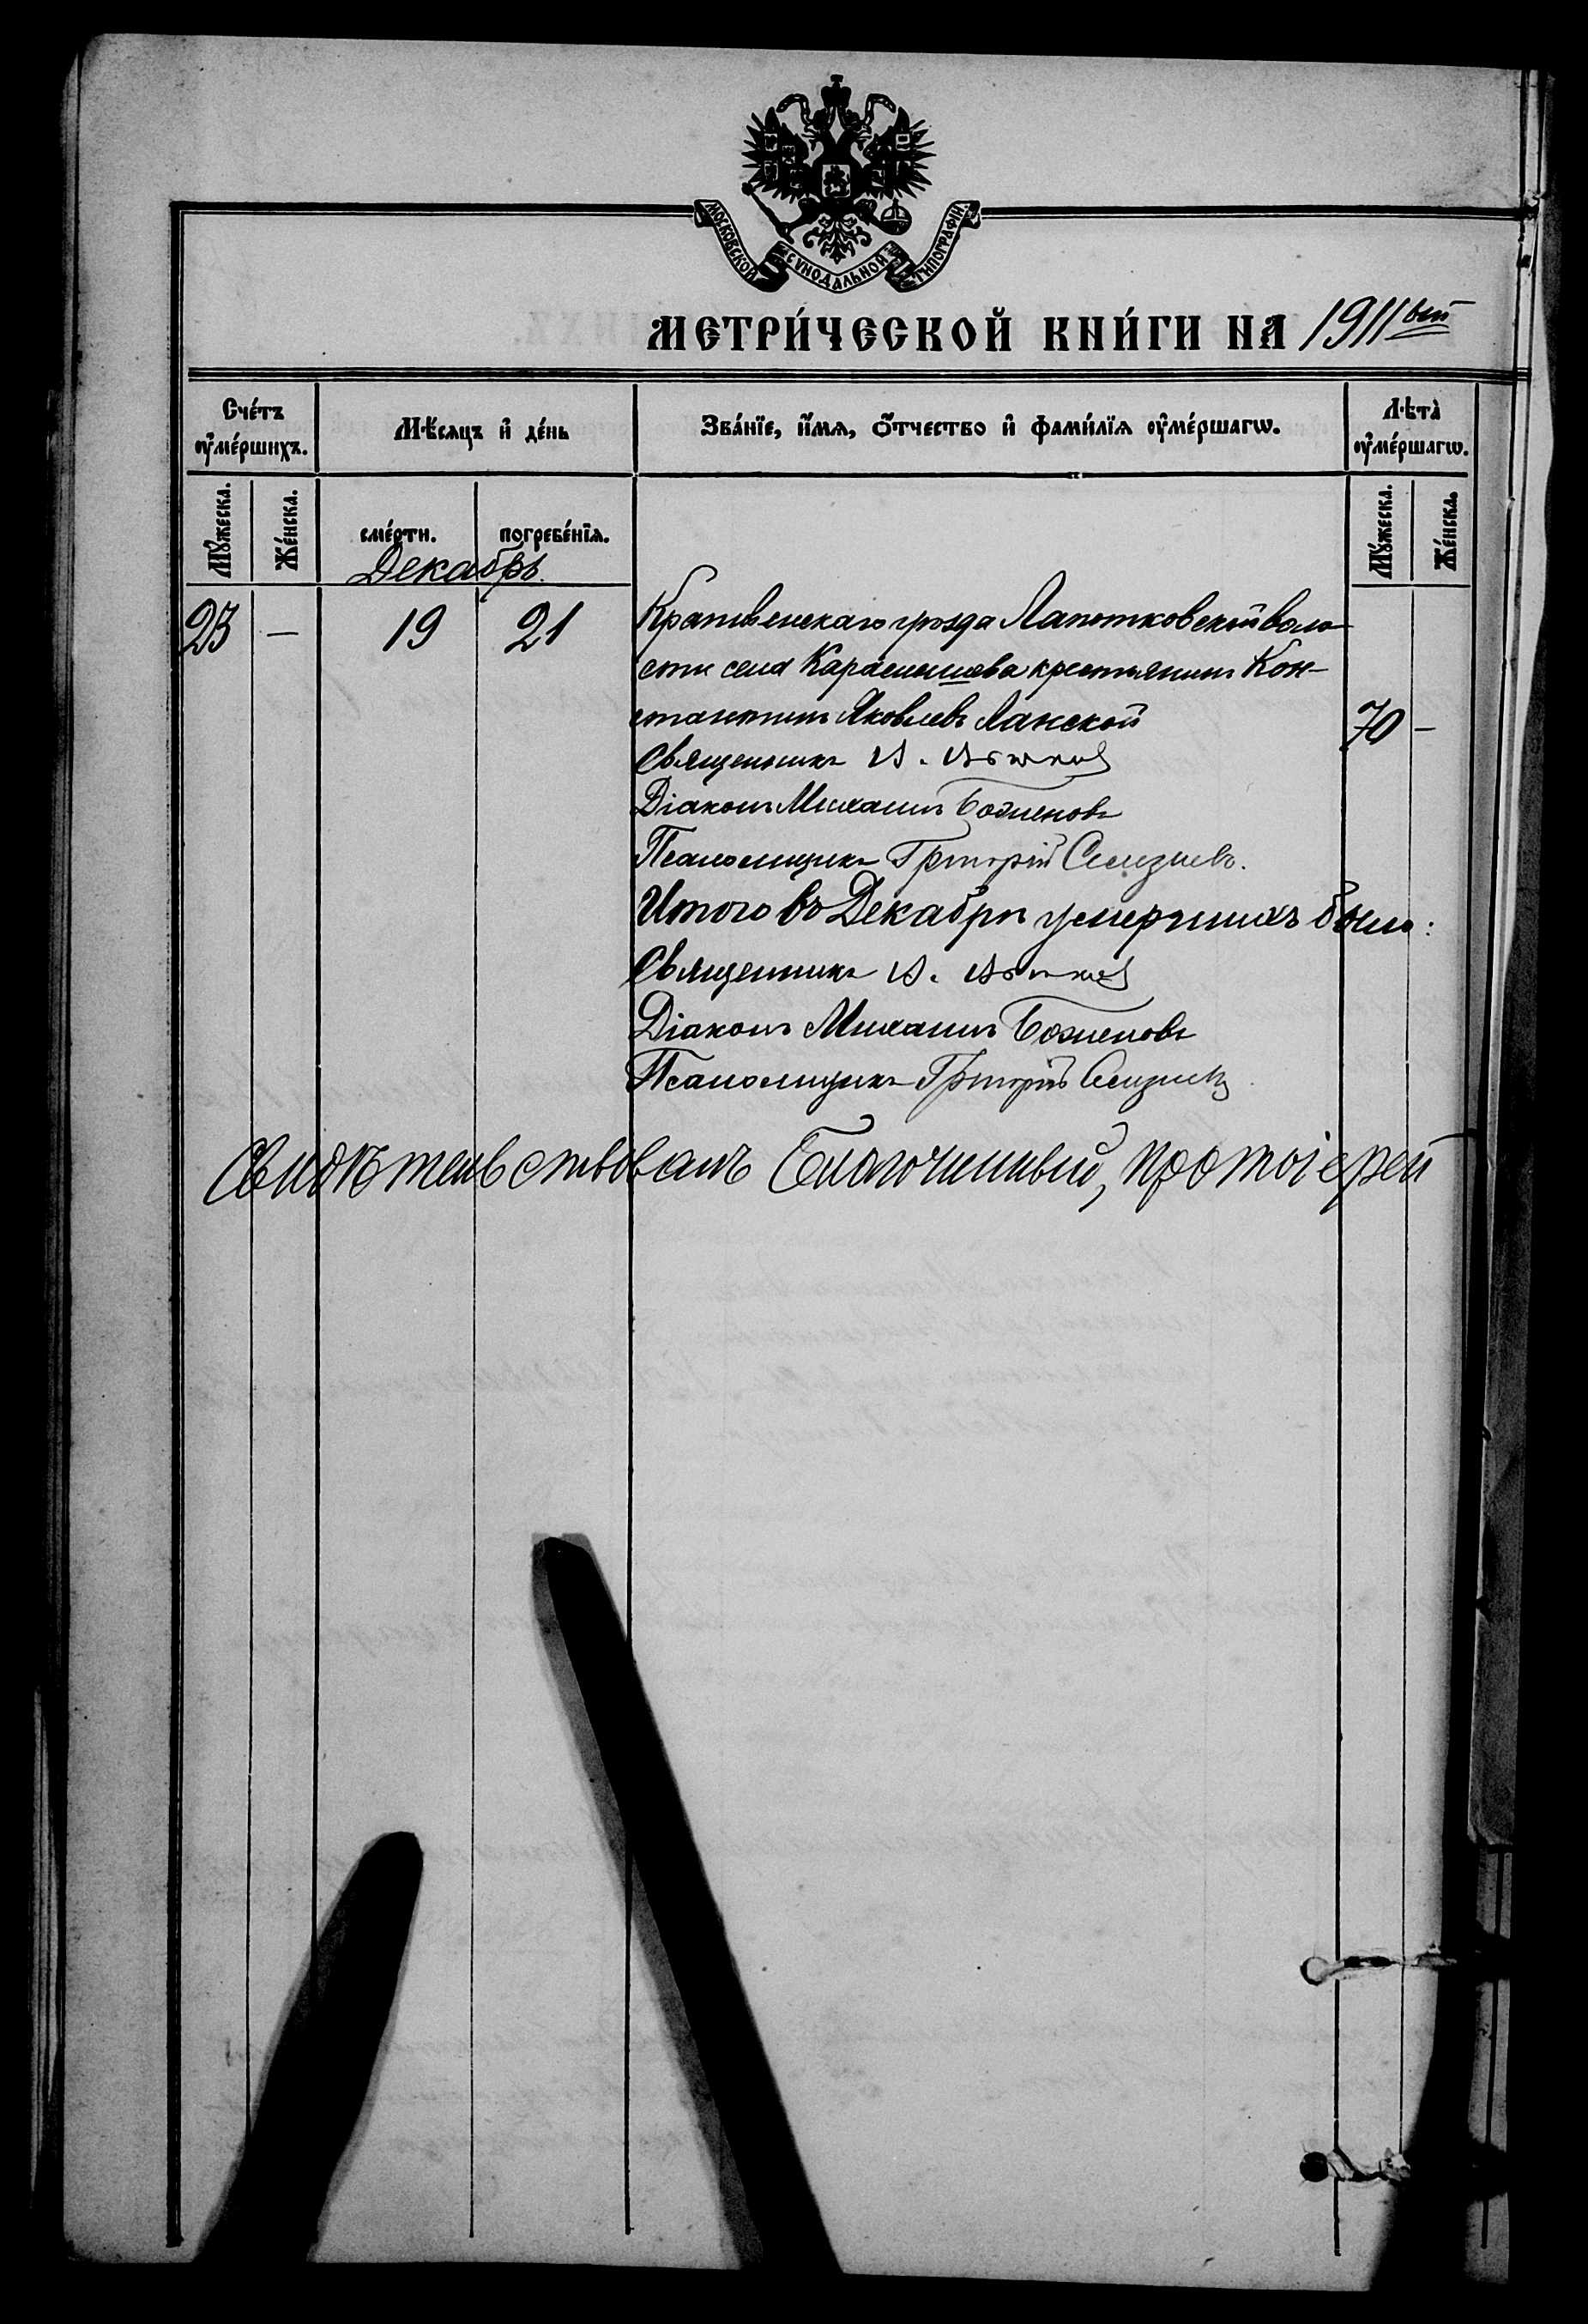 МОСКОВСКОЙ СѴНОДАЛЬНОЙ ТИПОГРАФІИ
МЕТРИ́ЧЕСКОЙ КНИ́ГИ НА 1911ый
Сче́тъ ᲂу҆ме́ршихъ.
Мѣ́сѧцъ и҆ де́нь
Зва́нїе, и҆́мѧ, ѻ҆́тчество и҆ фами́лїѧ ᲂу҆ме́ршагѡ.
Лѣта̀ ᲂу҆ме́ршагѡ.
Мꙋ́жеска.
Же́нска.
сме́рти.
погребе́нїѧ.
Мꙋ́жеска.
Же́нска.
Декабрь.
23 — 19 21 Крапивенскаго уѣзда Лапотковской воло
сти села Карамышева крестьянинъ Кон-
стантинъ Яковлевъ Ланской 70 —
Священникъ
Діаконъ Михаилъ Боженовъ
Псаломщикъ Григорій Селезневъ.
Итого въ Декабрѣ умершихъ было:
Священникъ
Діаконъ Михаилъ Боженовъ
Псаломщикъ Григорій Селезневъ
Свидѣтельствовалъ Благочинный, протоіерей